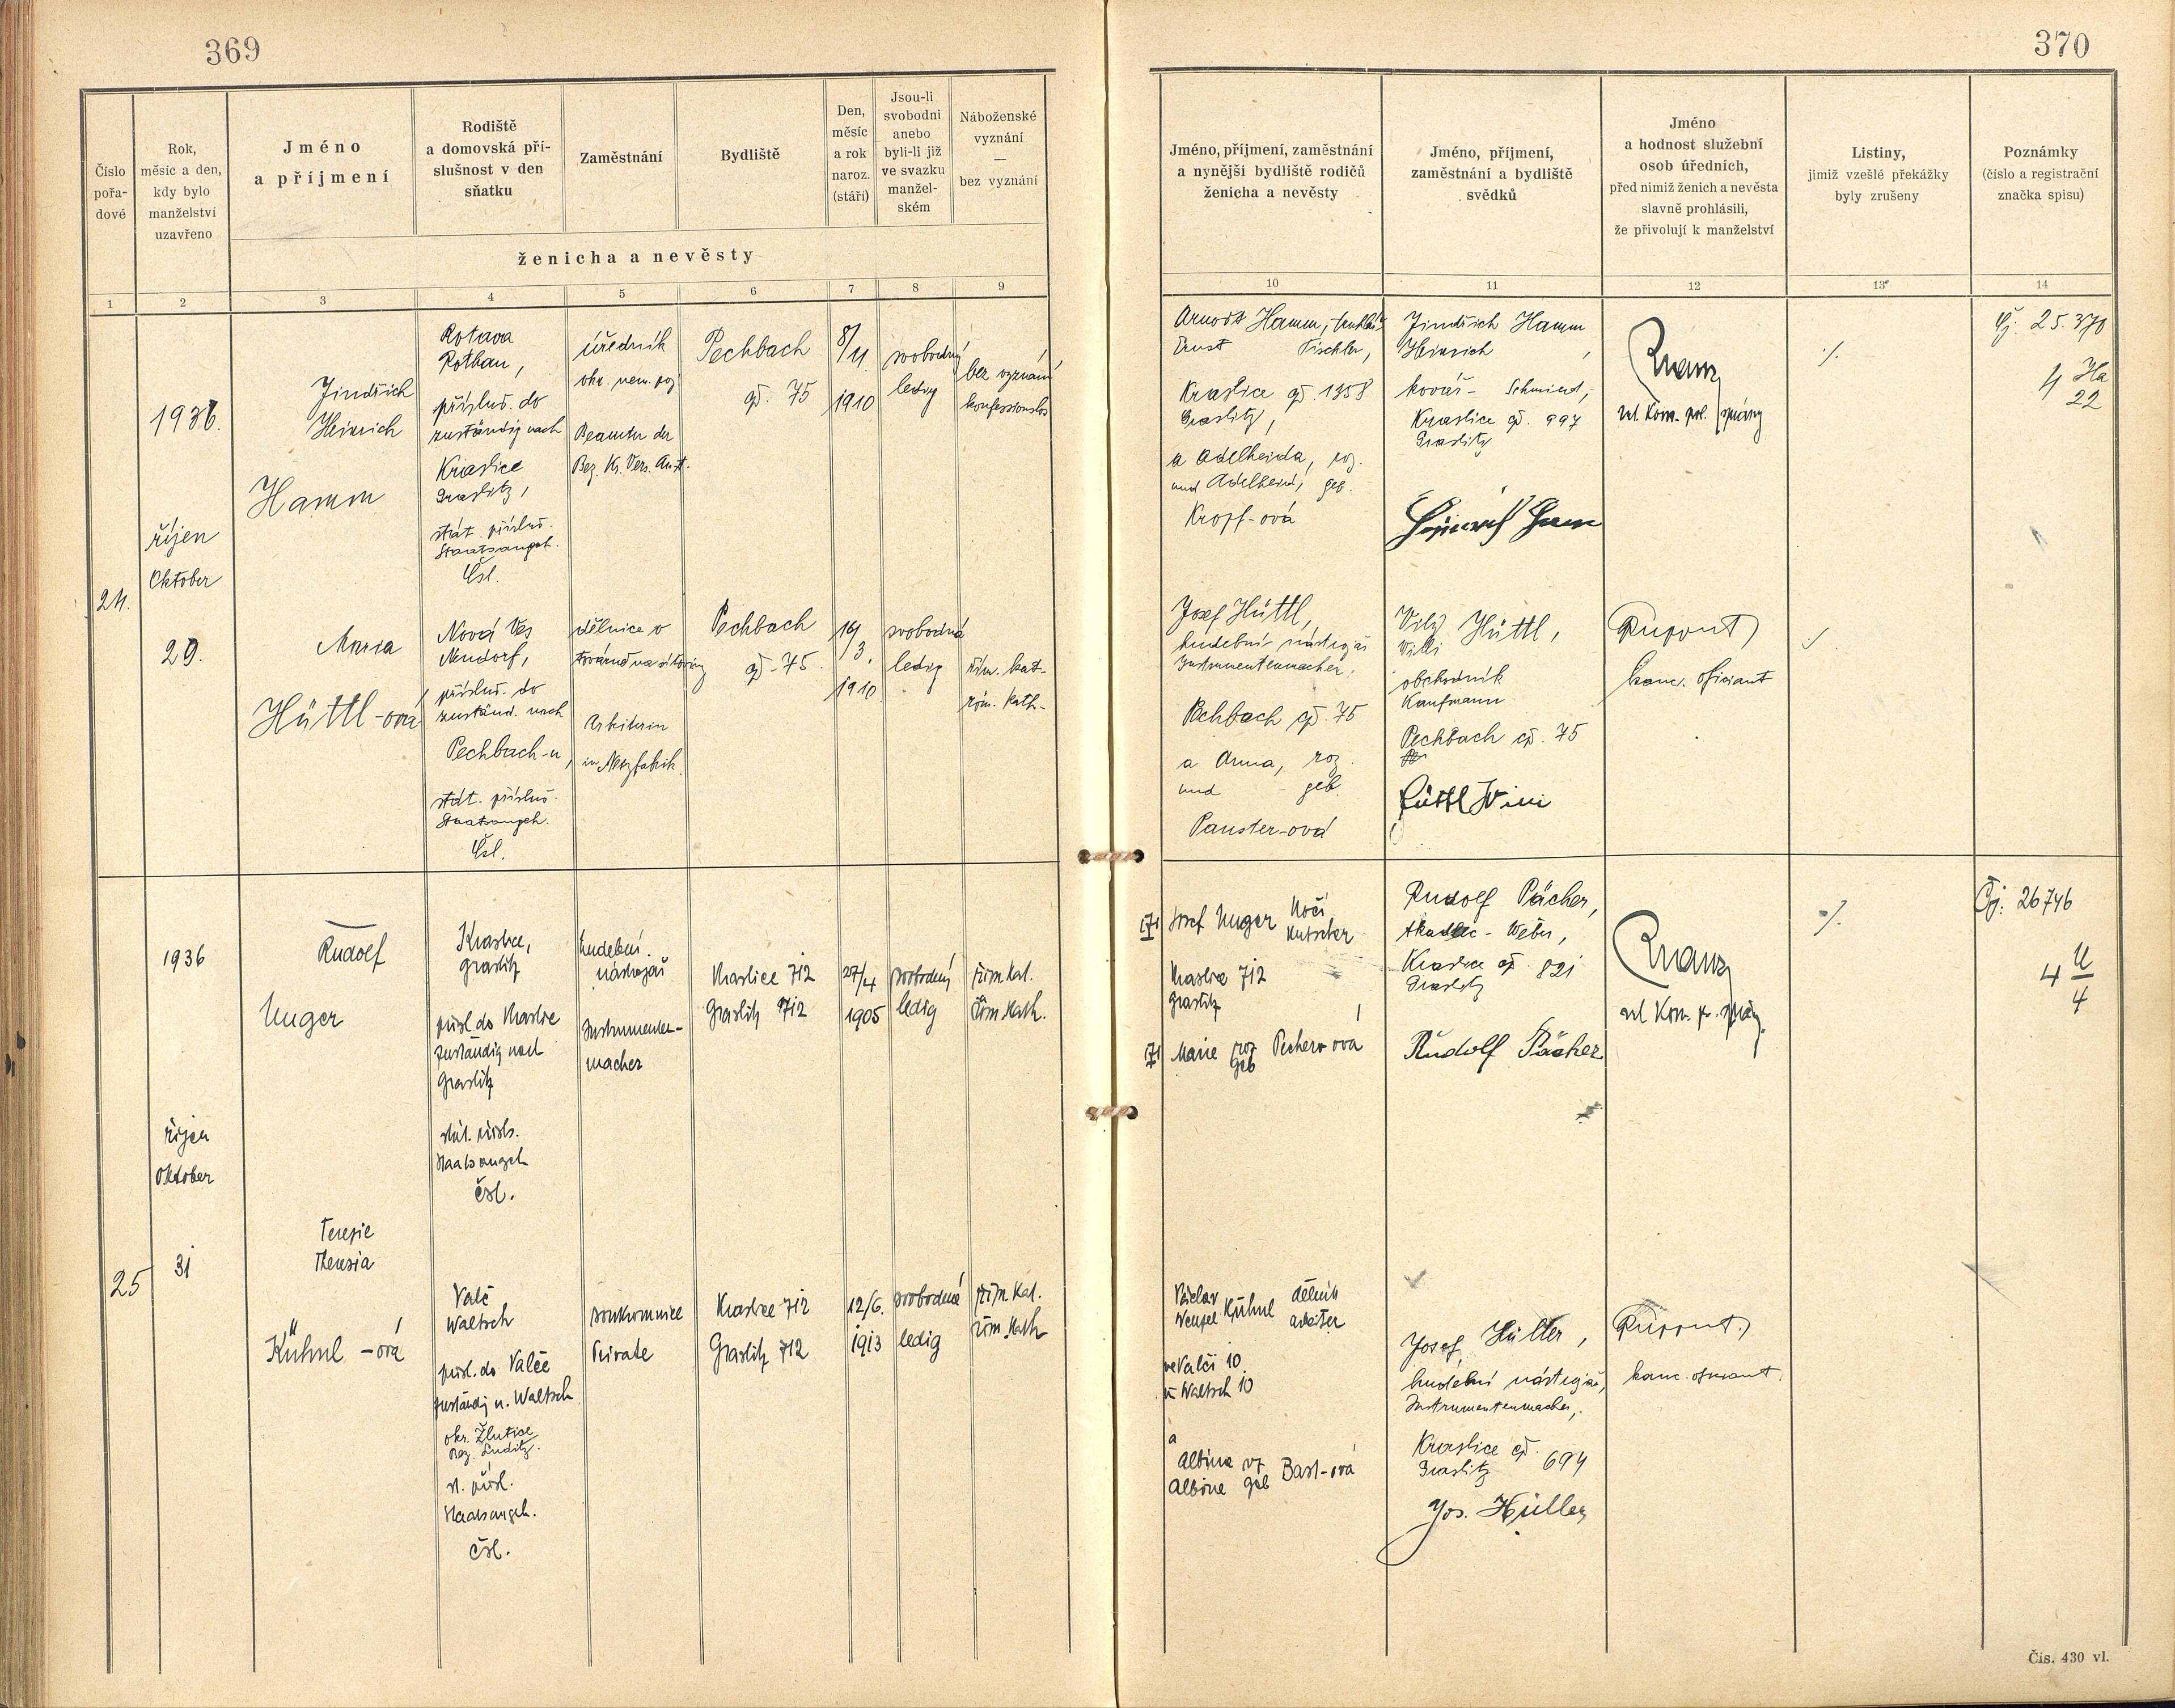 369
Číslo
pořa-
dové
Rok,
měsíc a den,
kdy bylo
manželství
uzavřeno
Jméno
a příjmení
Rodiště
a domovská pří-
slušnost v den
sňatku
Zaměstnání
Bydliště
Den,
měsíc
a rok
naroz.
(stáří)
Jsou-li
svobodni
anebo
byli-li již
ve svazku
manžel-
ském
Náboženské
vyznání
—
bez vyznání
ženicha a nevěsty
1
2
3
4
5
6
7
8
9
24.
1936.
říjen
Oktober
29.
Jindřich
Heinrich
Hamm
Rotava
Rothau,
přísluš. do
zuständig nach
Kraslice
Graslitz,
stát. přísluš.
Staatsangeh.
Čsl.
úředník
okr. nem. poj.
Beamter der
Bez. Kr. Vers. Anst.
Pechbach
čp. 75
8/
11.
1910
svobodný
ledig
bez vyznání
konfessionslos
Maria
Hüttl-ová
Nová Ves
Neudorf,
přísluš. do
zuständ. nach
Pechbach-u,
stát. přísluš.
Staatsangeh.
Čsl.
dělnice v
továrně na síťoviny
Arbeiterin
in Netzfabrik.
Pechbach
čp. 75.
19/
3.
1910
svobodná
ledig
řím. kat.
röm. kath.
25
1936
říjen
Oktober
31
Rudolf
Unger
Kraslice,
Graslitz
přísl. do Kraslice
zuständig nach
Graslitz
stát. přísls.
Staatsangeh
čsl.
hudební
nástrojař
Instrumenten-
macher
Kraslice 712
Graslitz 712
27/4
1905
svobodný
ledig
řím kat.
röm. kath.
Terezie
Theresia
Kühnl-ová
Valč
Waltsch
přísl. do Valče
zuständig n. Waltsch
okr. Žlutice
Bez. Luditz.
st. přísl.
Staatsangeh.
čsl.
soukromnice
Private
Kraslice 712
Graslitz 712
12/6.
1913
svobodná
ledig
řím kat.
röm kath
370
Jméno, příjmení, zaměstnání
a nynější bydliště rodičů
ženicha a nevěsty
Jméno, příjmení,
zaměstnání a bydliště
svědků
Jméno
a hodnost služební
osob úředních,
před nimiž ženich a nevěsta
slavně prohlásili,
že přivolují k manželství
Listiny,
jimiž vzešlé překážky
byly zrušeny
Poznámky
(číslo a registrační
značka spisu)
10
11
12
13
14
Arnošt Hamm, truhlář
Ernst Tischler,
Kraslice čp. 1358
Graslitz,
a Adelheida, roz.
und Adelheid, geb.
Kropf-ová
Jindřich Hamm
Heinrich,
kovář - Schmied,
Kraslice čp. 997
Graslitz
Heinrich Hamm
ved. Kom. pol. správy
./.
čj. 25.370
4 Ha
22
Josef Hüttl,
hudební nástrojař
Instrumentenmacher,
Pechbach čp. 75
a Anna, roz.
und geb.
Panster-ová
Vilij Hüttl,
Willi
obchodník
Kaufmann
Pechbach čp. 75
Hüttl Willi
kanc. oficiant
./.
Josef Unger kočí
Kutscher
Kraslice 712
Graslitz
Marie roz
geb Pecher-ová
Rudolf Pächer,
tkadlec - Weber,
Kraslice čp. 821
Graslitz
Rudolf Pächer.
ved Kom. p. správy.
./.
Čj: 26746
4 U
4
Václav
Wenzel Kühnl dělník
arbeiter
ve Valči 10
in Waltsch 10
a
Albina roz
Albine geb Bast-ová
Josef Hüller,
hudební nástrojař,
Instrumentenmacher,
Kraslice čp. 694
Graslitz
Jos. Hüller
kanc. oficiant.
Čís. 430 vl.